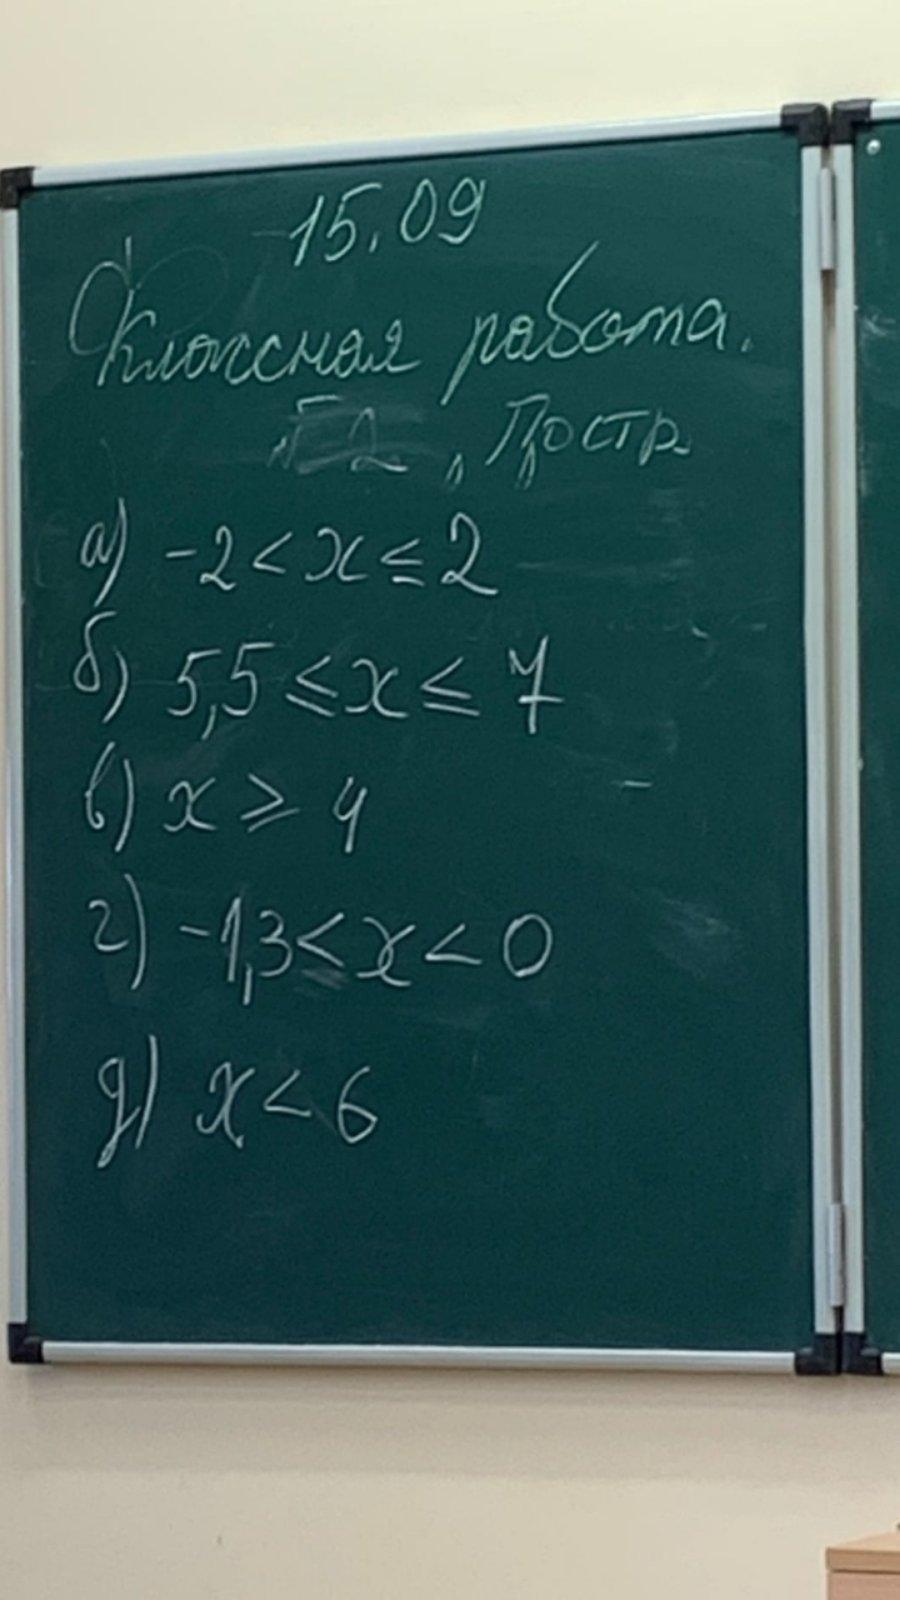 15.09
Классная работа.
а) -2 < x ≤ 2
б) 5,5 ≤ x ≤ 7
в) x ≥ 4
г) -1,3 ≤ x < 0
д) x < 6